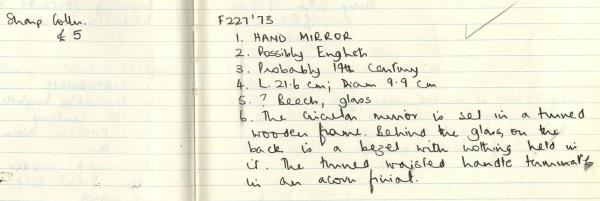 Sharp Colln.
£5
F227'73
1. HAND MIRROR
2. Possibly English
3. Probably 19th Century
4. L. 21.6 cm; Diam 9.9 cm
5. ? Beech, glass
6. The circular mirror is set in a turned
wooden frame. Behind the glass, on the
back is a bezel with nothing held in
it. The turned waisted handle terminates
in an acorn finial.